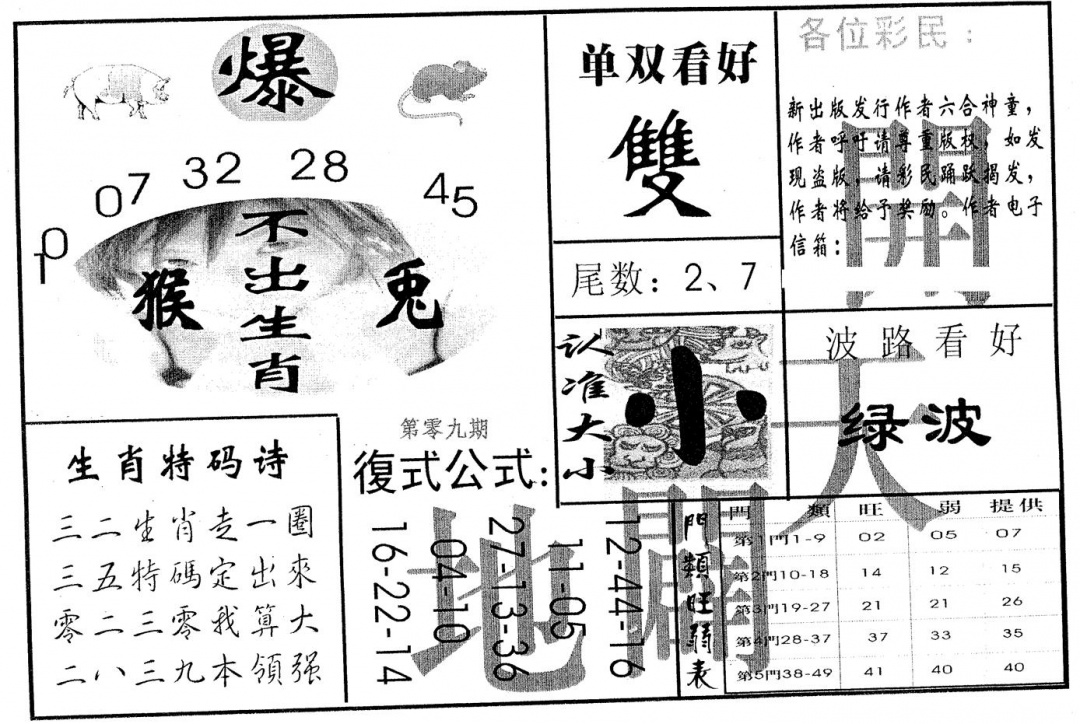 爆
10 07 32 28 45
不出生肖
猴 兎
单双看好
雙
尾数：2、7
各位彩民：
新出版发行作者六合神童，
作者呼吁请尊重版权，如发
现盗版，请彩民踊跃揭发，
作者将给予奖励。作者电子
信箱：
认准大小
小
波路看好
绿波
開天
闢地
生肖特码诗
三二生肖走一圈
三五特碼定出來
零二三零我算大
二八三九本領强
第零九期
復式公式：
16-22-14
04-10
27-13-36
11-05
12-44-16
門類旺弱表
門類 旺 弱 提供
第1門1-9 02 05 07
第2門10-18 14 12 15
第3門19-27 21 21 26
第4門28-37 37 33 35
第5門38-49 41 40 40